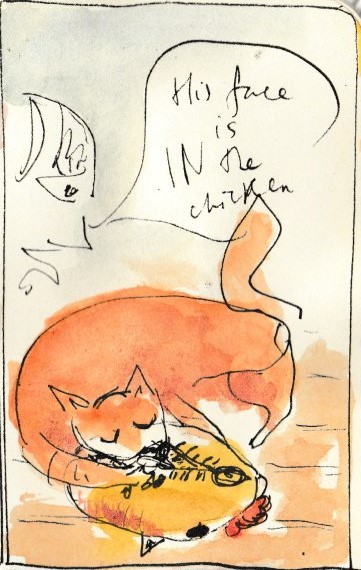 His face
is
IN the
chicken